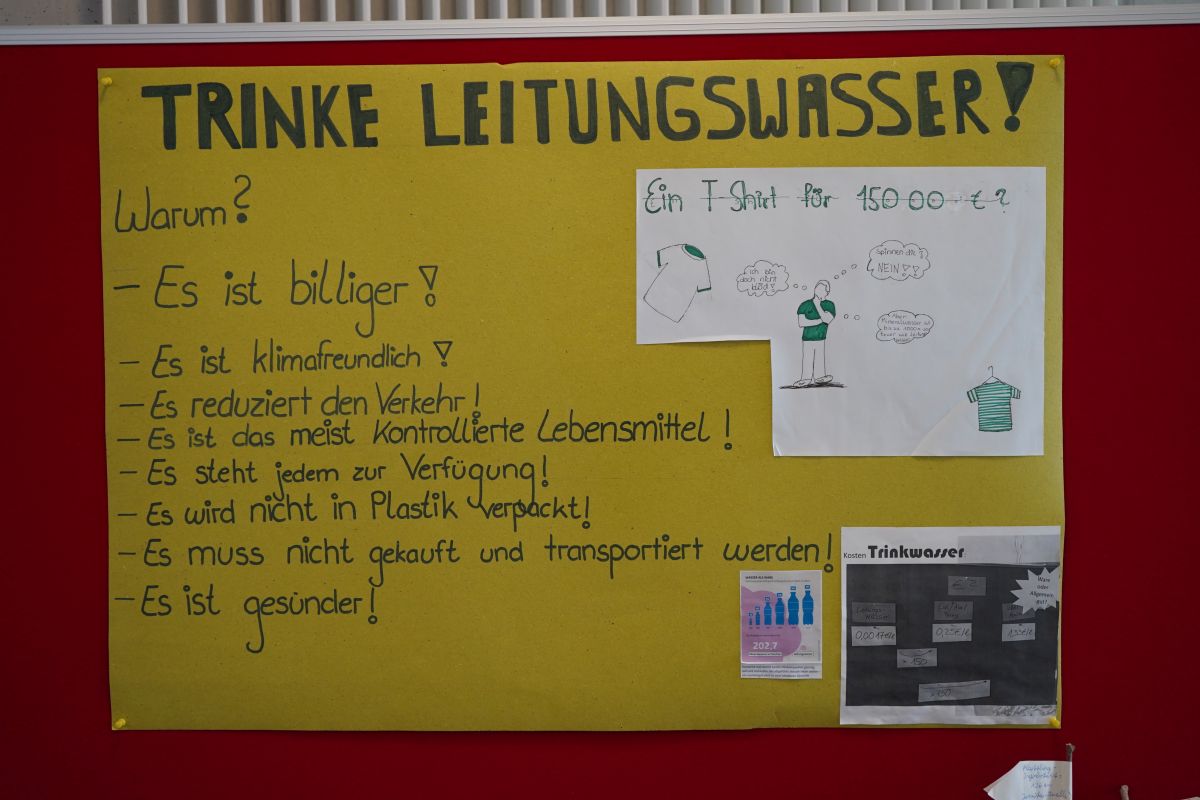 TRINKE LEITUNGSWASSER!
Warum?
– Es ist billiger!
– Es ist klimafreundlich!
– Es reduziert den Verkehr!
– Es ist das meist kontrollierte Lebensmittel!
– Es steht jedem zur Verfügung!
– Es wird nicht in Plastik verpackt!
– Es muss nicht gekauft und transportiert werden!
– Es ist gesünder!
Ein T-Shirt für 15000 € ?
Ich bin
doch nicht
blöd!
Spinnen die?
NEIN!!
Aber
Mineralwasser ist
bis zu 1000x so
teuer wie
WASSER ALS WARE
202,7
Kosten Trinkwasser
Ware
oder
Allgemein
gut?
€ ?
Leitungs-
wasser
0,0017€/l
0,25€/l
1,33€/l
x 150
x 150